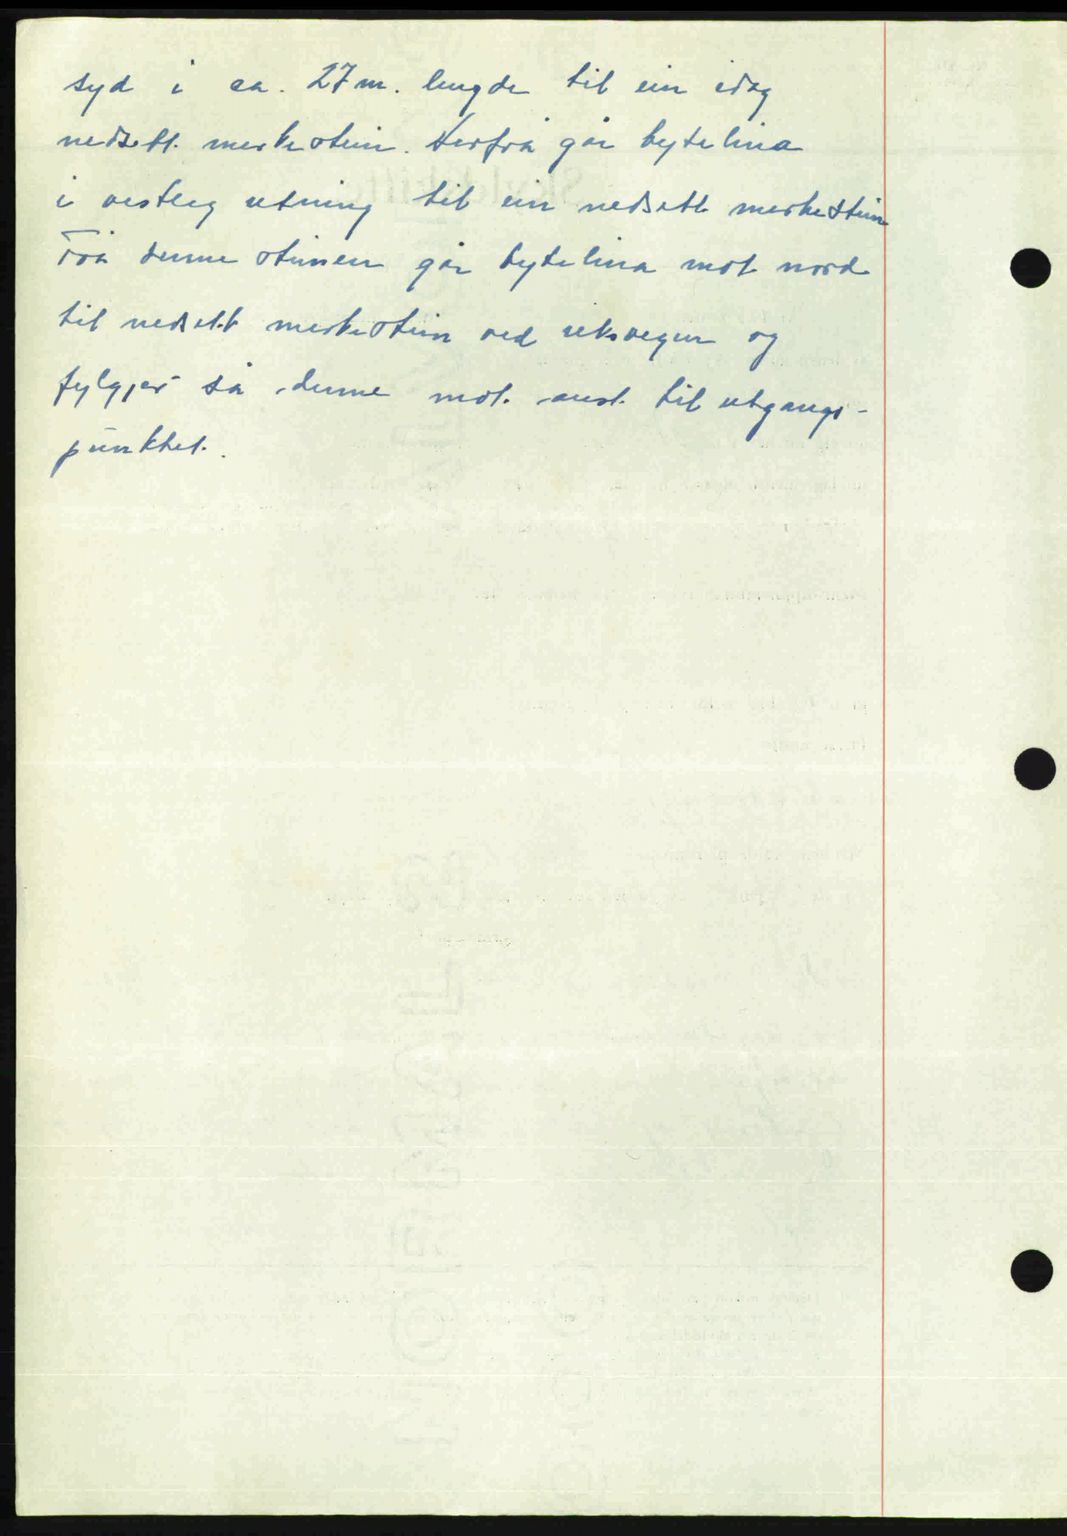 syd i ca. 27 m. lengde til ein idag
nedsett merkestein. Herfrå går bytelina
i vestleg retning til ein nedsett merkestein
Frå denne steinen går bytelina mot nord
til nedsett merkestein ved riksvegen og
fylgjer så denne mot aust til utgangs-
punktet.